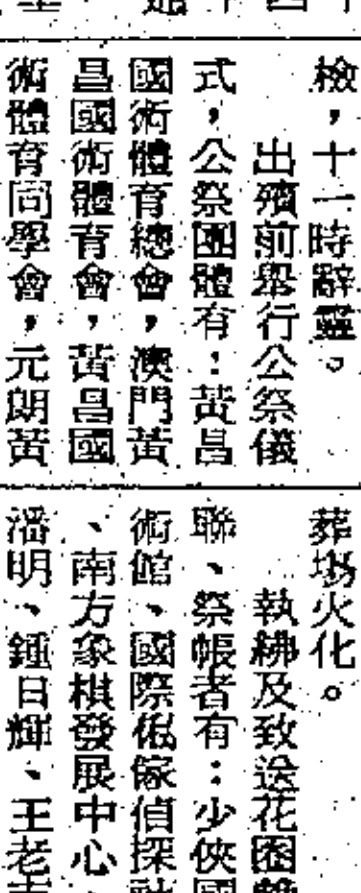 檢，十一時辭靈。
出殯前舉行公祭儀
式，公祭團體有：黃昌
國術體育總會，澳門黃
昌國術體育會，黃昌國
術體育同學會，元朗黃
葬場火化。
執紼及致送花圈
聯、祭帳者有：少俠國
術館、國際俬傢偵探社
、南方象棋發展中心、
潘明、鍾日輝、王老